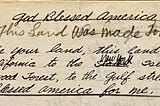 God Blessed America
This Land Was made To
is your land, this land
California to the New York
wood Forest, to the gulf stre
Blessed america for me.